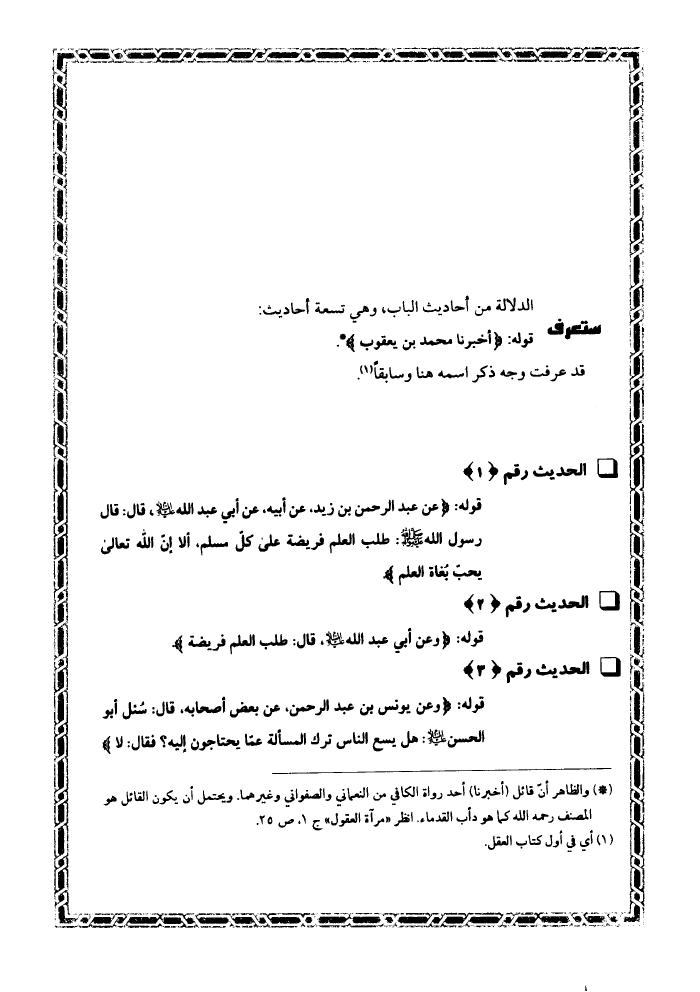 الدلالة من أحاديث الباب، وهي تسعة أحاديث:
ستعرف
قوله: ﴿أخبرنا محمد بن يعقوب﴾*.
قد عرفت وجه ذكر اسمه هنا وسابقاً(١).
الحديث رقم ﴿١﴾
قوله: ﴿عن عبد الرحمن بن زيد، عن أبيه، عن أبي عبد الله عليه السلام، قال: قال
رسول الله ﷺ: طلب العلم فريضة علىٰ كلّ مسلم، ألا إنّ الله تعالىٰ
يحبّ بُغاة العلم﴾.
الحديث رقم ﴿٢﴾
قوله: ﴿وعن أبي عبد الله عليه السلام، قال: طلب العلم فريضة﴾.
الحديث رقم ﴿٣﴾
قوله: ﴿وعن يونس بن عبد الرحمن، عن بعض أصحابه، قال: سُئل أبو
الحسن عليه السلام: هل يسع الناس ترك المسألة عمّا يحتاجون إليه؟ فقال: لا﴾
(*) والظاهر أنّ قائل (أخبرنا) أحد رواة الكافي من النعماني والصفواني وغيرهما. ويحتمل أن يكون القائل هو
المصنف رحمه الله كما هو دأب القدماء. انظر «مرآة العقول» ج ١، ص ٢٥.
(١) أي في أول كتاب العقل.